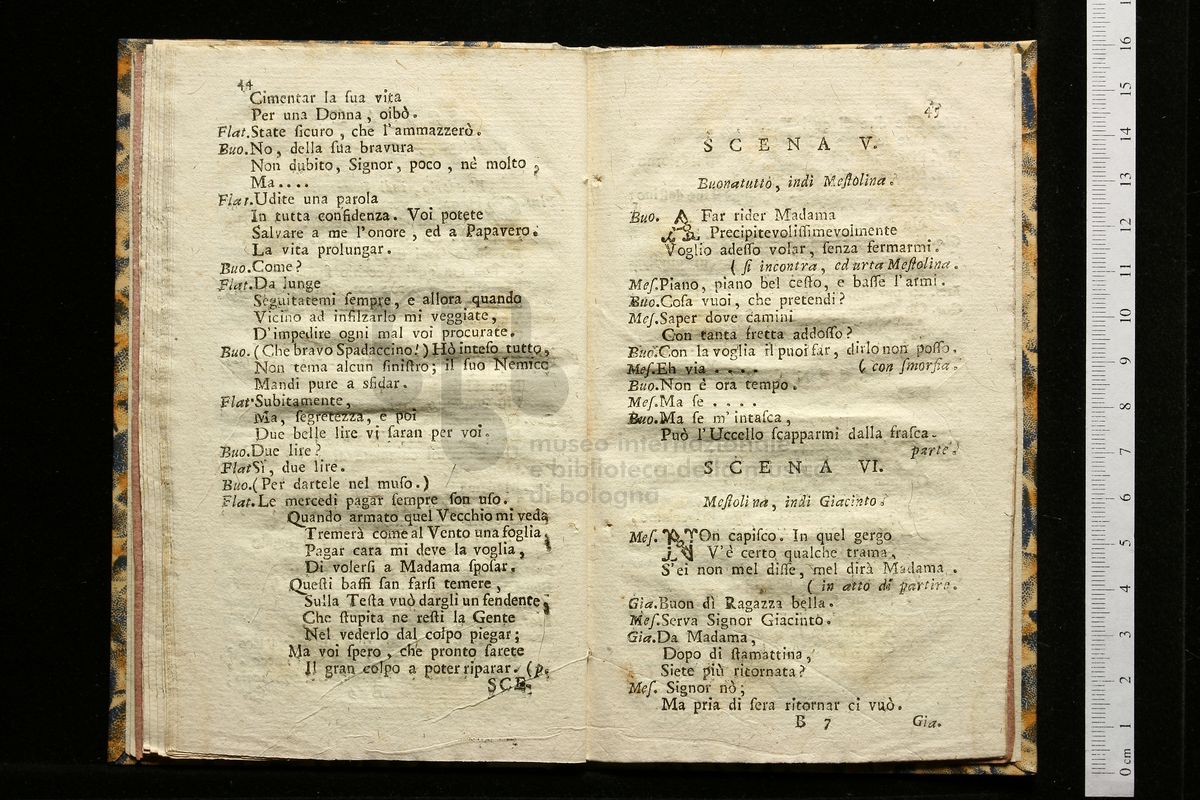 44
Cimentar la ſua vita
Per una Donna, oibò.
Flat. State ſicuro, che l'ammazzerò.
Buo. No, della ſua bravura
Non dubito, Signor, poco, nè molto,
Ma....
Flat. Udite una parola
In tutta confidenza. Voi potete
Salvare a me l'onore, ed a Papavero.
La vita prolungar.
Buo. Come?
Flat. Da lunge
Seguitatemi ſempre, e allora quando
Vicino ad infilzarlo mi veggiate,
D'impedire ogni mal voi procurate.
Buo. (Che bravo Spadaccino!) Hò inteſo tutto,
Non tema alcun ſiniſtro; il ſuo Nemico
Mandi pure a sfidar.
Flat. Subitamente,
Ma, ſegretezza, e poi
Due belle lire vi ſaran per voi.
Buo. Due lire?
Flat Sì, due lire.
Buo. (Per dartele nel muſo.)
Flat. Le mercedi pagar ſempre ſon uſo.
Quando armato quel Vecchio mi veda
Tremerà come al Vento una foglia,
Pagar cara mi deve la voglia,
Di volerſi a Madama ſpoſar.
Queſti baffi ſan farſi temere,
Sulla Teſta vuò dargli un fendente,
Che ſtupita ne reſti la Gente
Nel vederlo dal colpo piegar;
Ma voi ſpero, che pronto ſarete
Il gran colpo a poter riparar. (p.
SCE.
45
SCENA V.
Buonatutto, indi Meſtolina.
Buo. A Far rider Madama
Precipitevoliſſimevolmente
Voglio adeſſo volar, ſenza fermarmi.
(ſi incontra, ed urta Meſtolina.
Meſ. Piano, piano bel ceſto, e baſſe l'armi.
Buo. Coſa vuoi, che pretendi?
Meſ. Saper dove camini
Con tanta fretta addoſſo?
Buo. Con la voglia il puoi far, dirlo non poſſo.
Meſ. Eh via .... (con ſmorfia.
Buo. Non è ora tempo.
Meſ. Ma ſe ....
Buo. Ma ſe m'intaſca,
Può l'Uccello ſcapparmi dalla fraſca.
parte.
SCENA VI.
Meſtolina, indi Giacinto.
Meſ. NOn capiſco. In quel gergo
V'è certo qualche trama,
S'ei non mel diſſe, mel dirà Madama.
(in atto di partire.
Gia. Buon dì Ragazza bella.
Meſ. Serva Signor Giacinto.
Gia. Da Madama,
Dopo di ſtamattina,
Siete più ritornata?
Meſ. Signor nò;
Ma pria di ſera ritornar ci vuò.
B 7 Gia.
museo internazionale
e biblioteca della musica
di bologna
0 cm 1 2 3 4 5 6 7 8 9 10 11 12 13 14 15 16